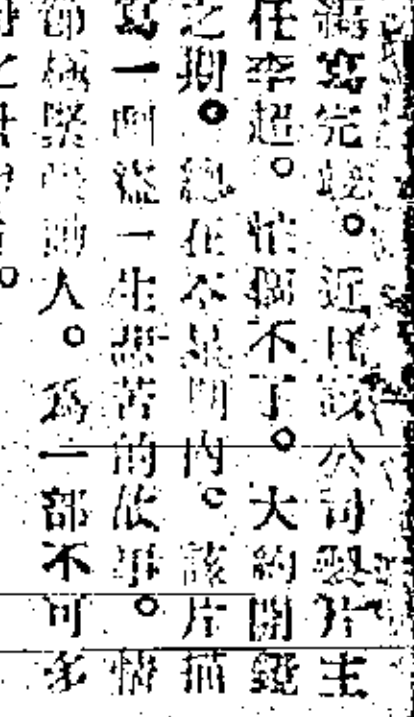 寫完竣。近日該公司製片主
任李超。忙個不了。大約開鏡
之期。總在本星期內。該片描
寫一個 一生 苦的故事。情
節極緊 動人。爲一部不可多